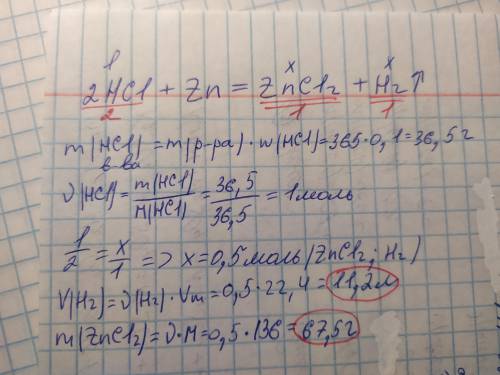 1 x x
2HCl + Zn = ZnCl₂ + H₂↑
2 1 1
m(HCl) = m(р-ра) · w(HCl) = 365·0,1 = 36,5 г
в-ва
ν(HCl) = m(HCl)/M(HCl) = 36,5/36,5 = 1 моль
1/2 = x/1 => x = 0,5 моль (ZnCl₂; H₂)
V(H₂) = ν(H₂) · Vm = 0,5 · 22,4 = 11,2 л
m(ZnCl₂) = ν·M = 0,5 · 136 = 67,5 г